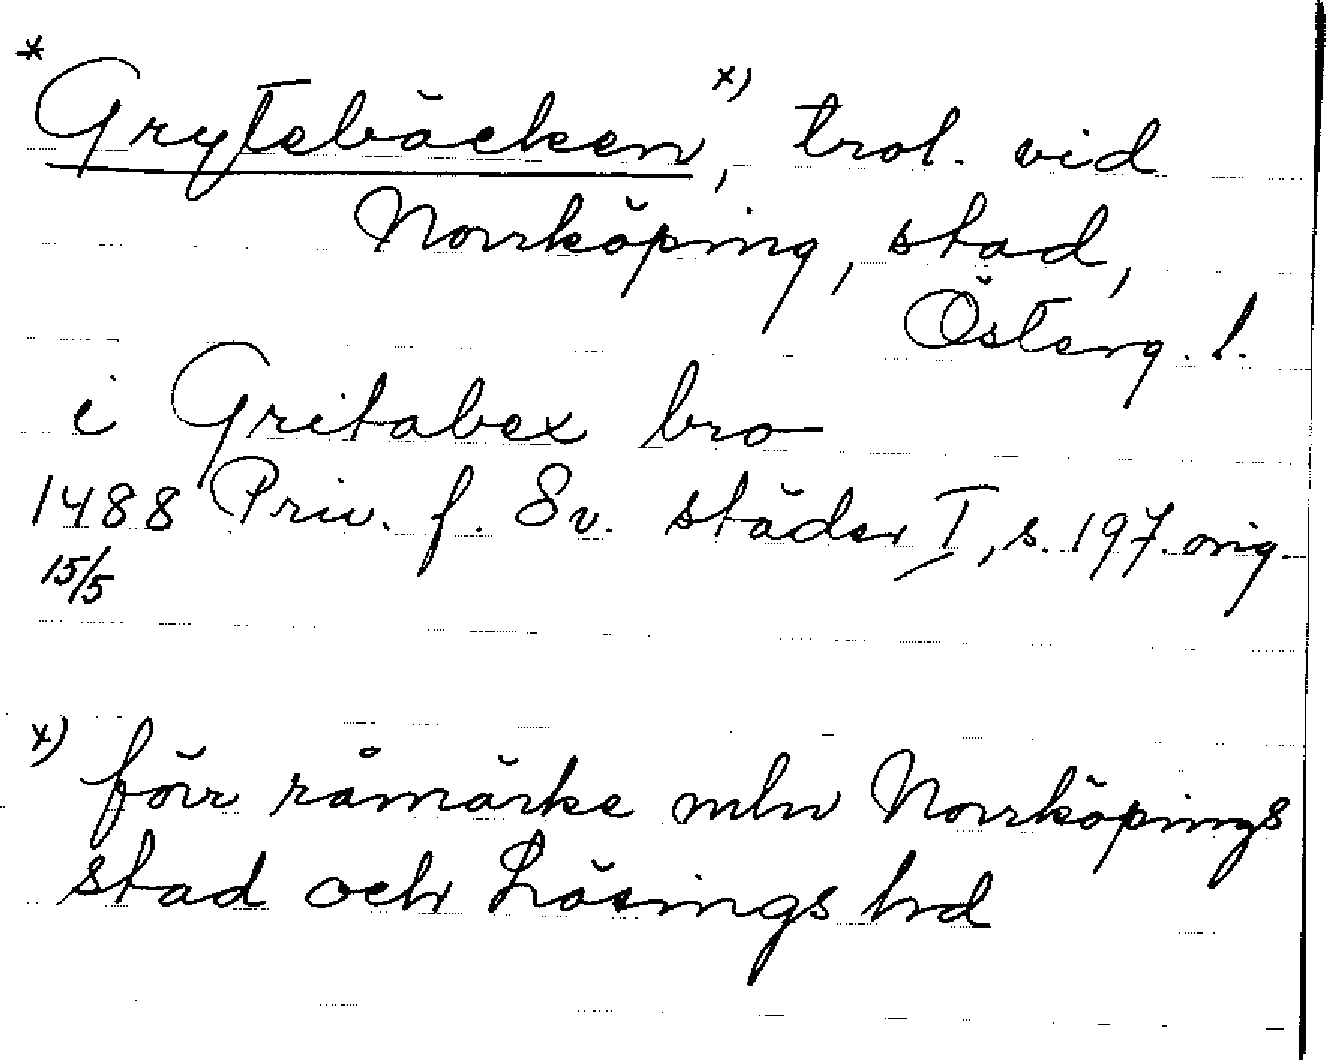 * Grytebäcken, x) trol. vid
Norrköping, stad,
Österg. l.
i Gritabex bro
1488 Priv. f. Sv. städer I, s. 197. orig.
15/5
x) förr råmärke mln Norrköpings
stad och Lösings hd